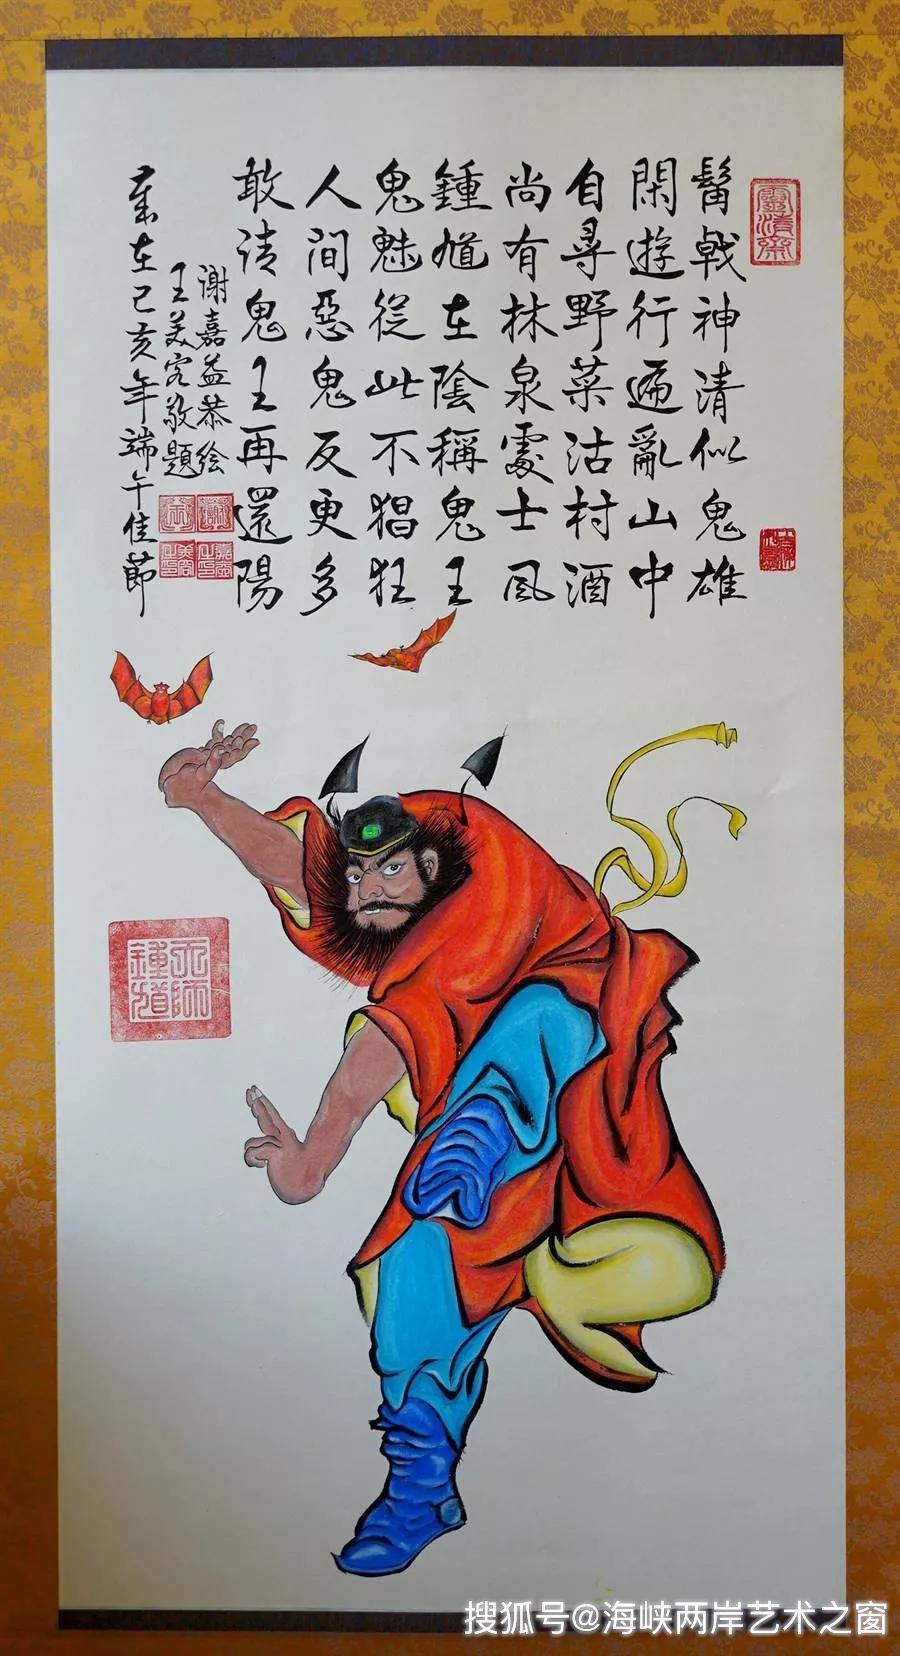 髯戟神清似鬼雄
閑遊行遍亂山中
自尋野菜沽村酒
尚有林泉處士風
鍾馗在陰稱鬼王
鬼魅從此不猖狂
人間惡鬼反更多
敢請鬼王再還陽
谢嘉益恭绘
王美容敬題
歲在己亥年端午佳節
天師
鍾馗
搜狐号@海峡两岸艺术之窗